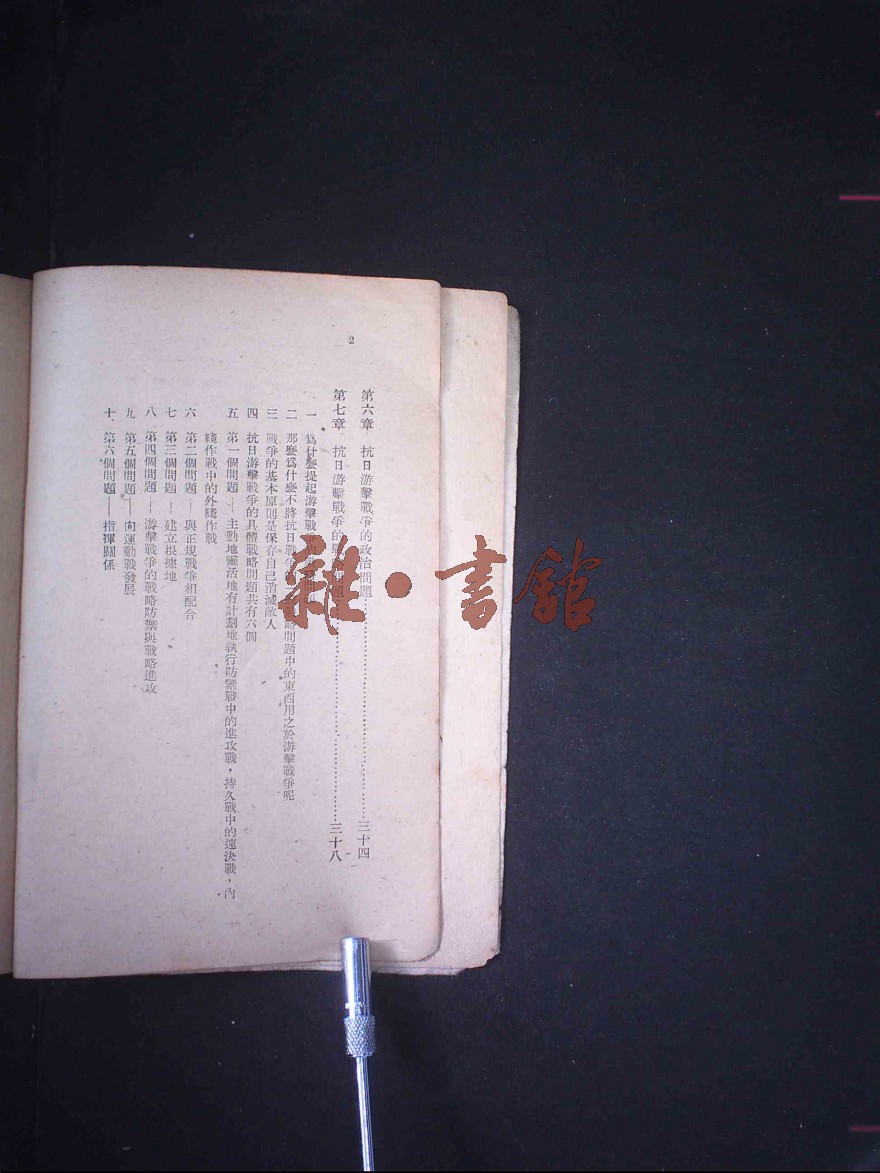 2
第六章　抗日游擊戰爭的政治問題……三十四
第七章　抗日游擊戰爭的戰 問題……三十八
一　爲什麽提起游擊戰
二　那麽爲什麽不將抗日戰爭 略問題中的東西用之於游擊戰爭呢
三　戰爭的基本原則是保存自己消滅敵人
四　抗日游擊戰爭的具體戰略問題共有六個
五　第一個問題——主動地靈活地有計劃地執行防禦戰中的進攻戰，持久戰中的速決戰，內
綫作戰中的外綫作戰
六　第二個問題——與正規戰爭相配合
七　第三個問題——建立根據地
八　第四個問題——游擊戰爭的戰略防禦與戰略進攻
九　第五個問題——向運動戰發展
十　第六個問題——指揮關係
雜·書館